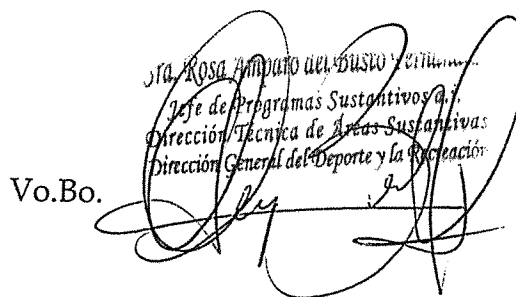 Rosa Amparo del Busto
Jefe de Programas Sustantivos a.i.
Dirección Técnica de Áreas Sustantivas
Dirección General del Deporte y la Recreación
Vo.Bo.